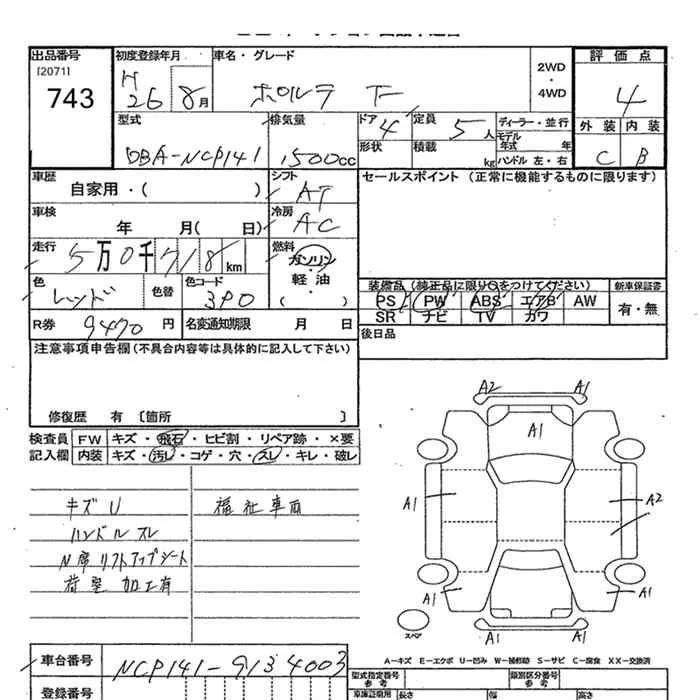 出品番号 初度登録年月 車名・グレード 評価点
[2071]
743 H26 8月 ポルテ F 2WD・4WD 4
型式 排気量 ドア 4 定員 5人 ディーラー・並行 外装 内装
DBA-NCP141 1500cc 形状 積載 kg モデル年式 年 ハンドル 左・右 C B
車歴 自家用・( ) シフト AT セールスポイント(正常に機能するものに限ります)
車検 年 月( 日) 冷房 AC
走行 5万0千718km 燃料 ガソリン
色 レッド 色替 色コード 3P0 軽油 ・( )
装備品(純正品に限り○をつけてください) 新車保証書
PS PW ABS エアB AW 有・無
SR ナビ TV カワ
R券 9470円 名変通知期限 月 日 後日品
注意事項申告欄(不具合内容等は具体的に記入して下さい)
修復歴 有 〔箇所 〕
検査員 FW キズ・飛石・ヒビ割・リペア跡・×要
記入欄 内装 キズ・汚レ・コゲ・穴・スレ・キレ・破レ
キズU 福祉車両
ハンドルスレ
N席リフトアップシート
荷室加工有
A2 A1
A1
A1 A2
A1 A1
スペア A1 A1
A-キズ E-エクボ U-凹み W-補修跡 S-サビ C-腐食 XX-交換済
車台番号 NCP141-9134003 型式指定番号 参考 類別区分番号 参考
登録番号 車庫証明用 参考 長さ 幅 高さ